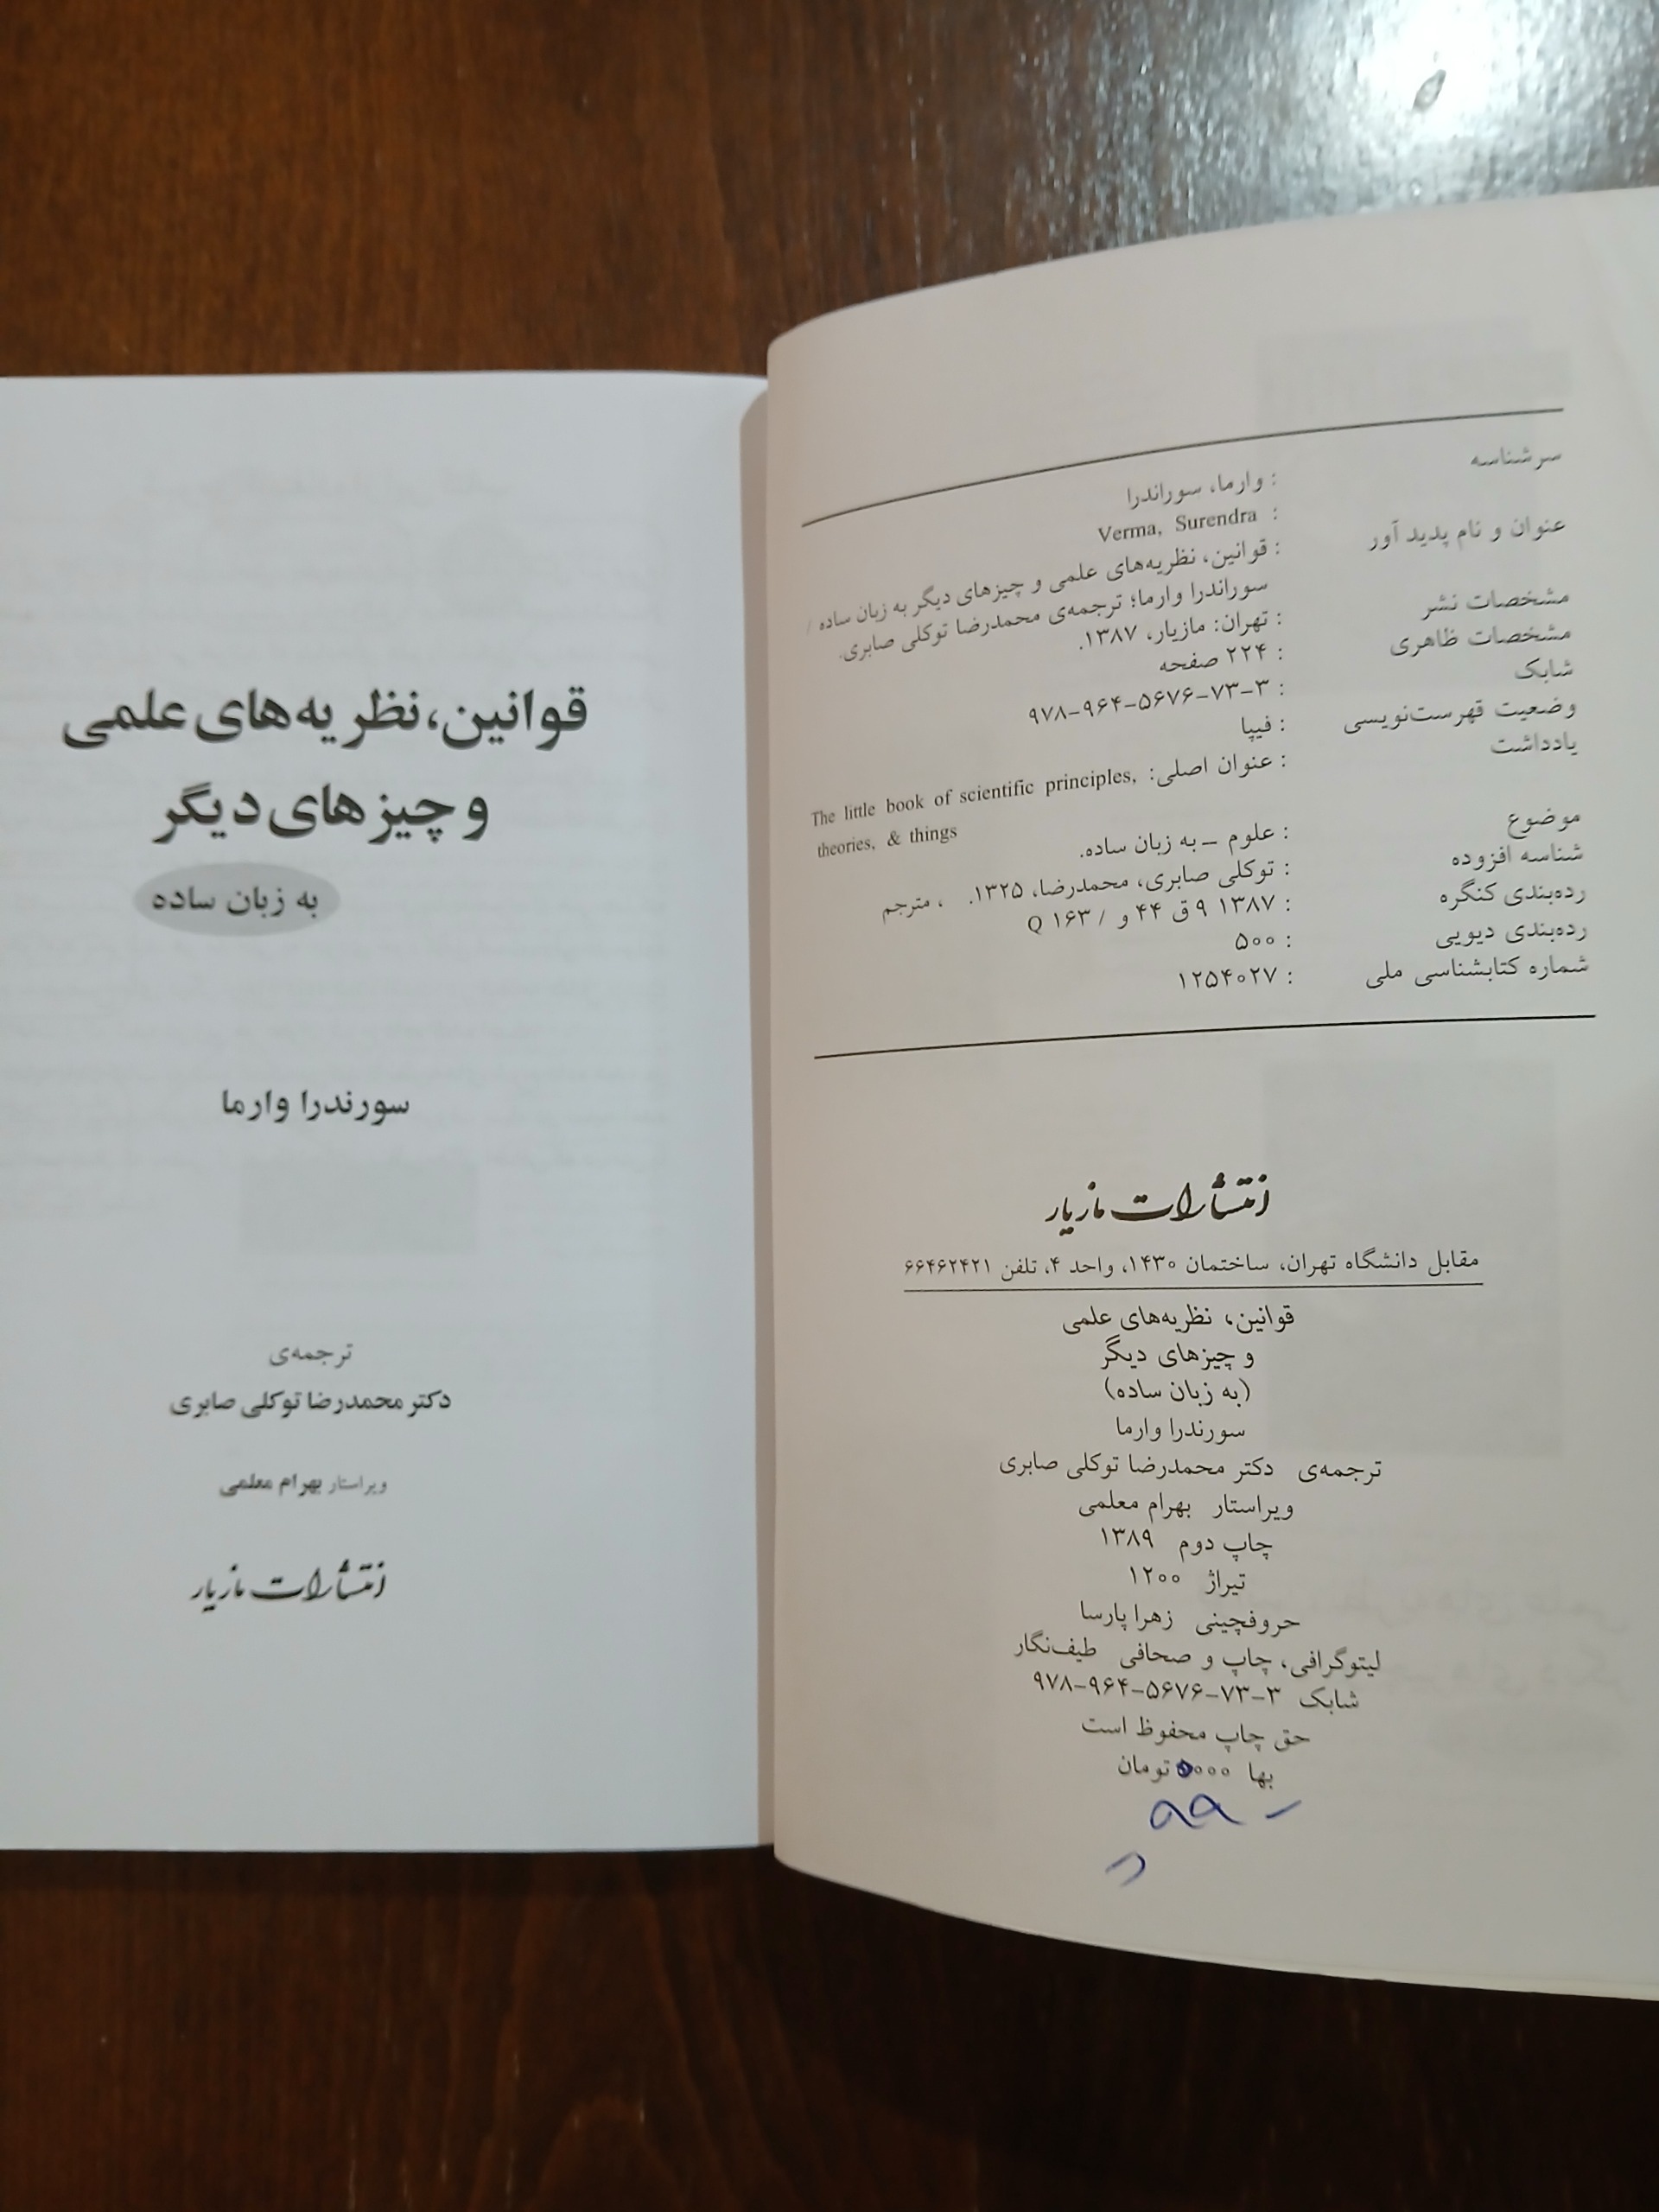 سرشناسه : وارما، سوراندرا
: Verma, Surendra
عنوان و نام پدید آور : قوانین، نظریه‌های علمی و چیزهای دیگر به زبان ساده /
سوراندرا وارما؛ ترجمه‌ی محمدرضا توکلی صابری.
مشخصات نشر : تهران: مازیار، ۱۳۸۷.
مشخصات ظاهری : ۲۲۴ صفحه
شابک : ۹۷۸-۹۶۴-۵۶۷۶-۷۳-۳
وضعیت فهرست‌نویسی : فیپا
یادداشت : عنوان اصلی: The little book of scientific principles,
theories, & things
موضوع : علوم ـ به زبان ساده.
شناسه افزوده : توکلی صابری، محمدرضا، ۱۳۲۵. ، مترجم
رده‌بندی کنگره : ۱۳۸۷ ۹ ق ۴۴ و / ۱۶۳ Q
رده‌بندی دیویی : ۵۰۰
شماره کتابشناسی ملی : ۱۲۵۴۰۲۷
انتشارات مازیار
مقابل دانشگاه تهران، ساختمان ۱۴۳۰، واحد ۴، تلفن ۶۶۴۶۲۴۲۱
قوانین، نظریه‌های علمی
و چیزهای دیگر
(به زبان ساده)
سورندرا وارما
ترجمه‌ی دکتر محمدرضا توکلی صابری
ویراستار بهرام معلمی
چاپ دوم ۱۳۸۹
تیراژ ۱۲۰۰
حروفچینی زهرا پارسا
لیتوگرافی، چاپ و صحافی طیف‌نگار
شابک ۹۷۸-۹۶۴-۵۶۷۶-۷۳-۳
حق چاپ محفوظ است
بها ۵۰۰۰ تومان
قوانین، نظریه‌های علمی
و چیزهای دیگر
به زبان ساده
سورندرا وارما
ترجمه‌ی
دکتر محمدرضا توکلی صابری
ویراستار بهرام معلمی
انتشارات مازیار